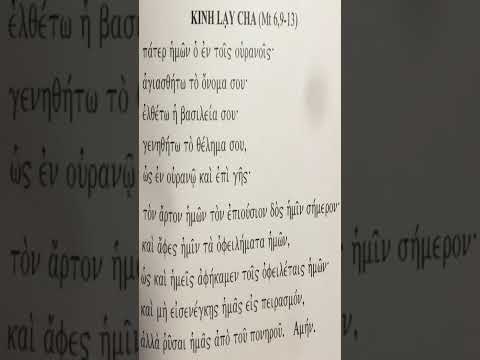 KINH LẠY CHA (Mt 6,9-13)
πάτερ ἡμῶν ὁ ἐν τοῖς οὐρανοῖς·
ἁγιασθήτω τὸ ὄνομα σου·
ἐλθέτω ἡ βασιλεία σου·
γενηθήτω τὸ θέλημα σου,
ὡς ἐν οὐρανῷ καὶ ἐπὶ γῆς·
τὸν ἄρτον ἡμῶν τὸν ἐπιούσιον δὸς ἡμῖν σήμερον·
καὶ ἄφες ἡμῖν τὰ ὀφειλήματα ἡμῶν,
ὡς καὶ ἡμεῖς ἀφήκαμεν τοῖς ὀφειλέταις ἡμῶν·
καὶ μὴ εἰσενέγκῃς ἡμᾶς εἰς πειρασμόν,
ἀλλὰ ῥῦσαι ἡμᾶς ἀπὸ τοῦ πονηροῦ. Αμήν.